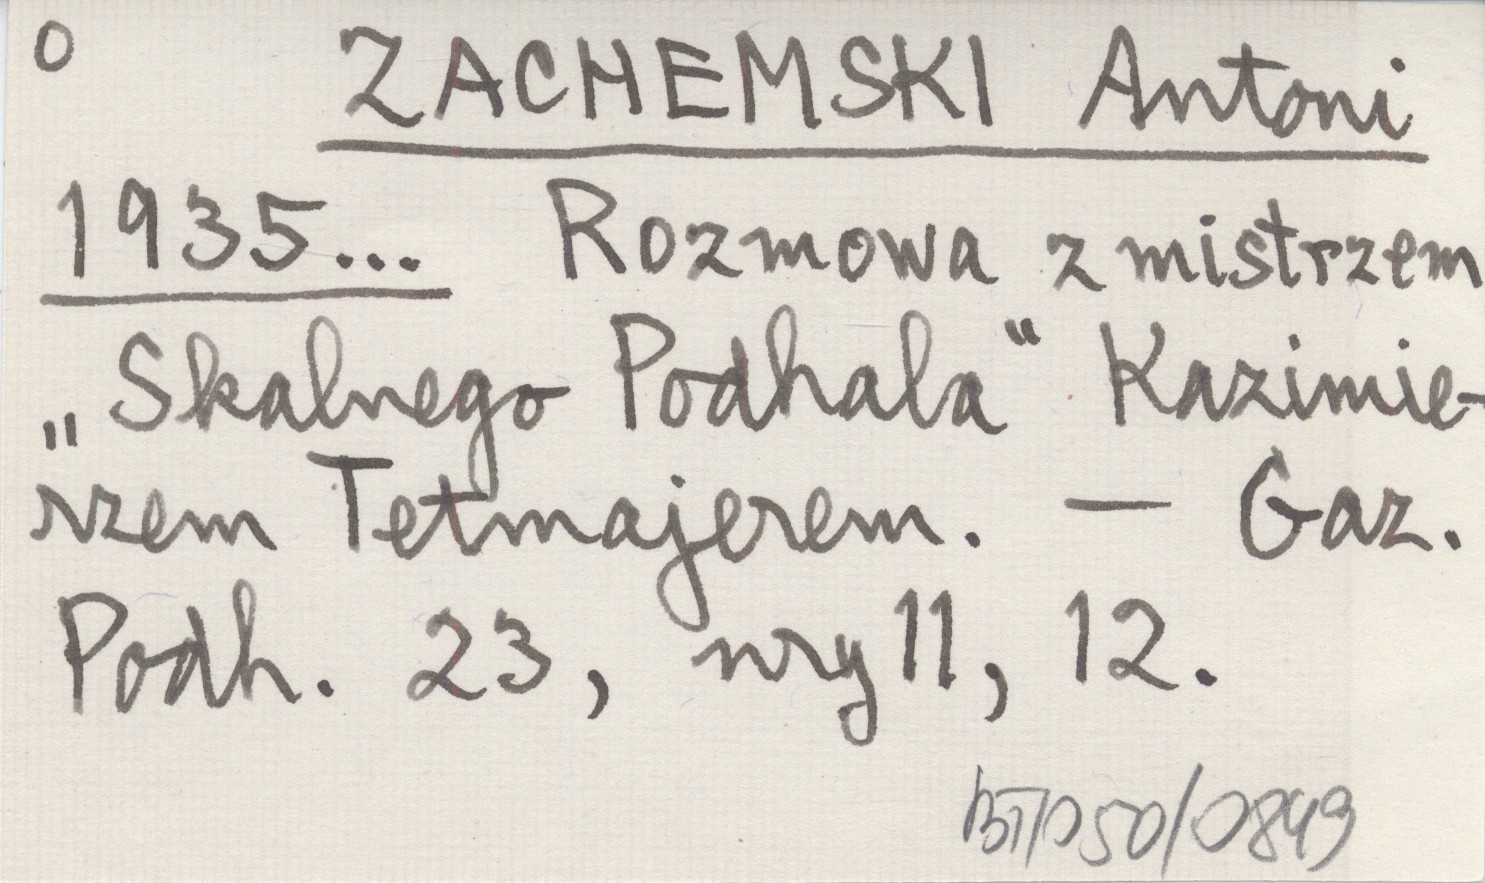 O ZACHEMSKI Antoni
1935... Rozmowa z mistrzem
„Skalnego Podhala" Kazimie-
rzem Tetmajerem. — Gaz.
Podh. 23, nry 11, 12.
BT/050/0849